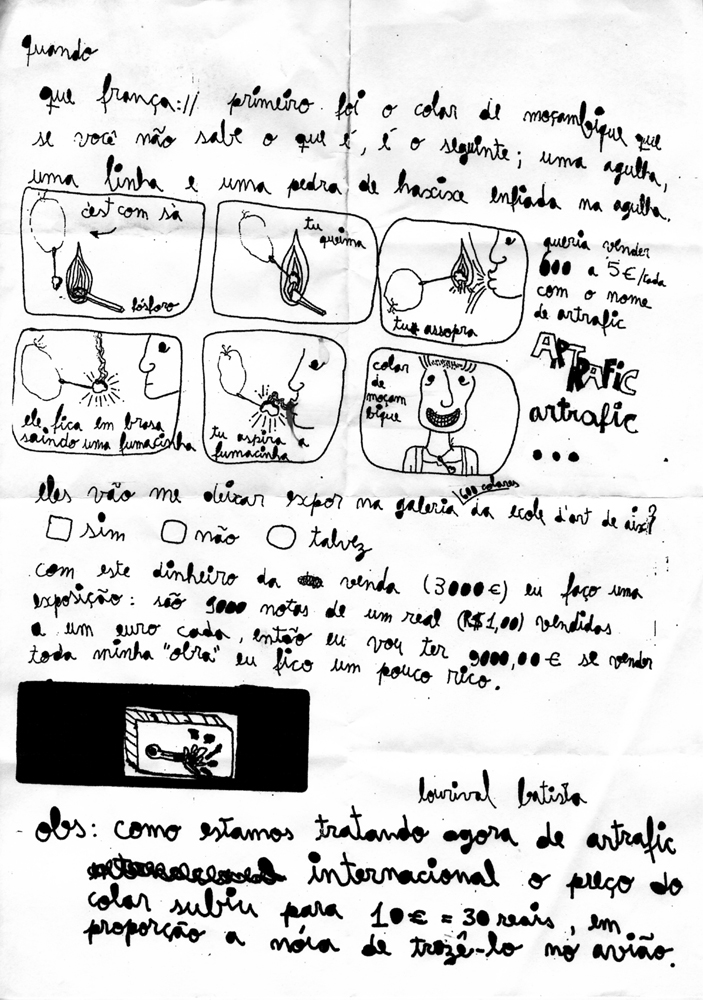 quando
que frança:// primeiro foi o colar de moçambique que
se você não sabe o que é, é o seguinte; uma agulha,
uma linha e uma pedra de haxixe enfiada na agulha.
c'est com sà
fósforo
tu queima
tu assopra
queria vender
600 a 5€/cada
com o nome
de artrafic
ARTRAFIC
artrafic
...
ele fica em brasa
saindo uma fumacinha
tu aspira a
fumacinha
colar
de
moçam
bique
600 colares
eles vão me deixar expor na galeria da ecole d'art de aix?
sim não talvez
com este dinheiro da venda (3000€) eu faço uma
exposição: são 9000 notas de um real (R$1,00) vendidas
a um euro cada, então eu vou ter 9000,00€ se vender
toda minha "obra" eu fico um pouco rico.
lourival batista
obs: como estamos tratando agora de artrafic
internacional o preço do
colar subiu para 10€ = 30 reais, em
proporção a nóia de trazê-lo no avião.